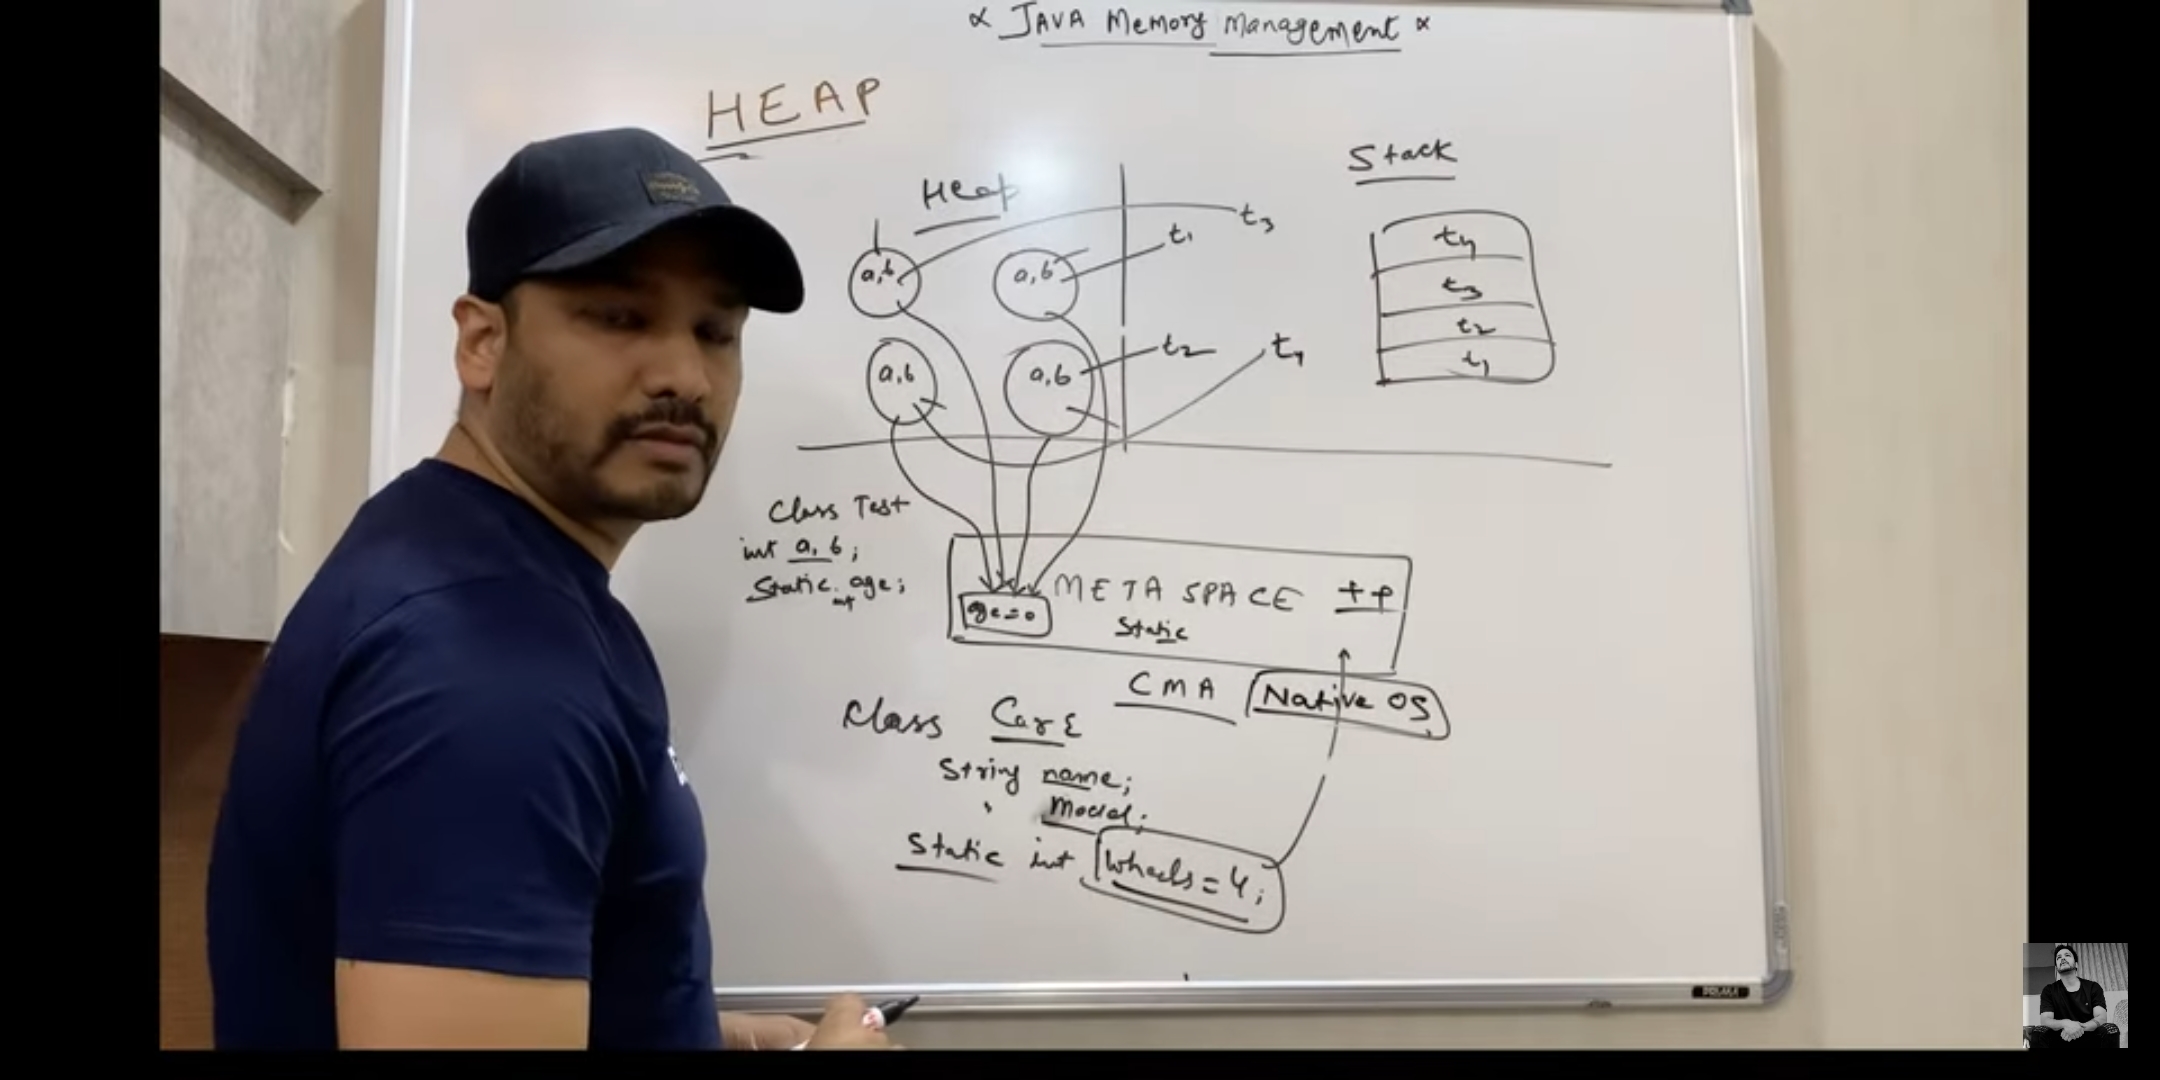 ∝ JAVA Memory Management ∝
HEAP
Heap
Stack
t3
t1
a,b
a,b
t2
t4
a,b
a,b
t4
t3
t2
t1
Class Test
int a, b;
Static int age;
META SPACE ++
age=0
Static
CMA
Native OS
Class Car {
String name;
" Model;
Static int wheels = 4;